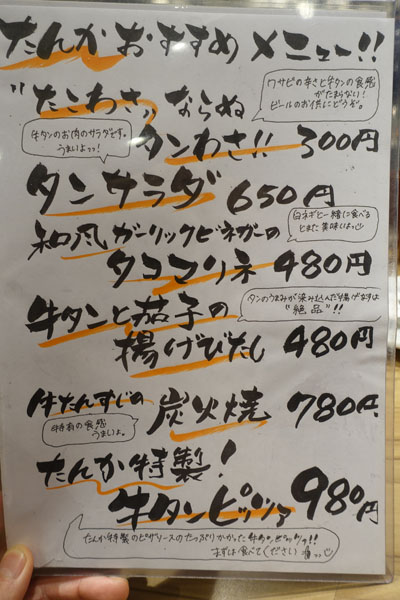 たんかおすすめメニュー!!
"たこわさ"ならぬ
ワサビの辛さと牛タンの食感
がたまらない!
ビールのお供にどうぞ。
タンわさ!! 300円
牛タンのお肉のサラダです。
うまいよっっ!
タンサラダ 650円
和風ガーリックビネガーの
白ネギと一緒に食べる
とまた美味しいよっ
タコマリネ 480円
牛タンと茄子の
タンのうまみが染み込んだ揚げなすは
"絶品"!!
揚げびたし 480円
牛たんすじの炭火焼 780円
特有の食感
うまいよ。
たんか特製!
牛タンピッツァ 980円
たんか特製のピザソースのたっぷりかかった牛タンピッツァ!!
まずは食べてください